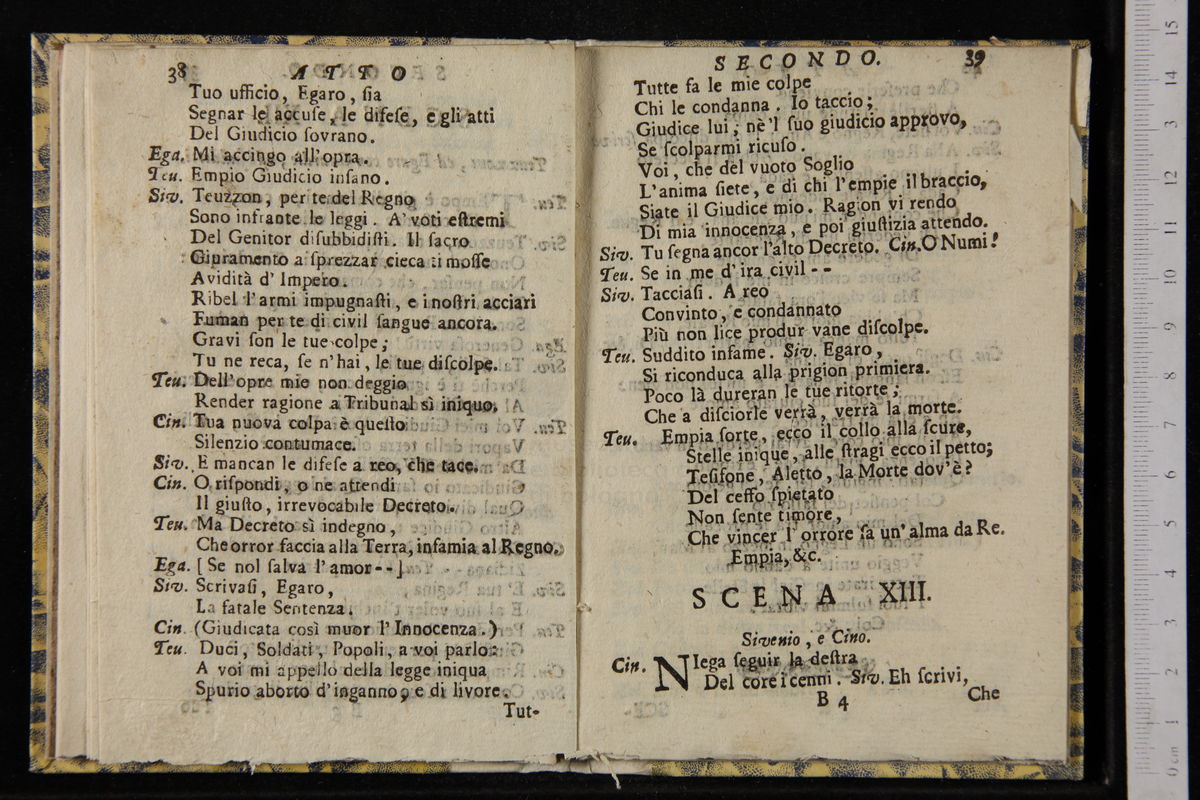 38 ATTO
Tuo ufficio, Egaro, ſia
Segnar le accuſe, le difeſe, e gli atti
Del Giudicio ſovrano.
Ega. Mi accingo all'opra.
Teu. Empio Giudicio inſano.
Siv. Teuzzon, per te del Regno
Sono infrante le leggi. A' voti eſtremi
Del Genitor diſubbidiſti. Il ſacro
Giuramento a ſprezzar cieca ti moſſe
Avidità d' Impero.
Ribel l'armi impugnaſti, e i noſtri acciari
Fuman per te di civil ſangue ancora.
Gravi ſon le tue colpe;
Tu ne reca, ſe n'hai, le tue diſcolpe.
Teu. Dell'opre mie non deggio
Render ragione a Tribunal sì iniquo.
Cin. Tua nuova colpa è queſto
Silenzio contumace.
Siv. E mancan le difeſe a reo, che tace.
Cin. O riſpondi, o ne attendi
Il giuſto, irrevocabile Decreto.
Teu. Ma Decreto sì indegno,
Che orror faccia alla Terra, infamia al Regno.
Ega. [Se nol ſalva l'amor--]
Siv. Scrivaſi, Egaro,
La fatale Sentenza.
Cin. (Giudicata così muor l'Innocenza.)
Teu. Duci, Soldati, Popoli, a voi parlo:
A voi mi appello della legge iniqua
Spurio aborto d'inganno, e di livore.
Tut-
SECONDO. 39
Tutte fa le mie colpe
Chi le condanna. Io taccio;
Giudice lui, nè'l ſuo giudicio approvo,
Se ſcolparmi ricuſo.
Voi, che del vuoto Soglio
L'anima ſiete, e di chi l'empie il braccio,
Siate il Giudice mio. Ragion vi rendo
Di mia innocenza, e poi giuſtizia attendo.
Siv. Tu ſegna ancor l'alto Decreto. Cin. O Numi!
Teu. Se in me d'ira civil--
Siv. Tacciaſi. A reo
Convinto, e condannato
Più non lice produr vane diſcolpe.
Teu. Suddito infame. Siv. Egaro,
Si riconduca alla prigion primiera.
Poco là dureran le tue ritorte;
Che a diſciorle verrà, verrà la morte.
Teu. Empia ſorte, ecco il collo alla ſcure,
Stelle inique, alle ſtragi ecco il petto;
Teſifone, Aletto, la Morte dov'è?
Del ceffo ſpietato
Non ſente timore,
Che vincer l'orrore ſa un'alma da Re.
Empia, &c.
SCENA XIII.
Sivenio, e Cino.
Cin. NIega ſeguir la deſtra
Del core i cenni. Siv. Eh ſcrivi,
B 4 Che